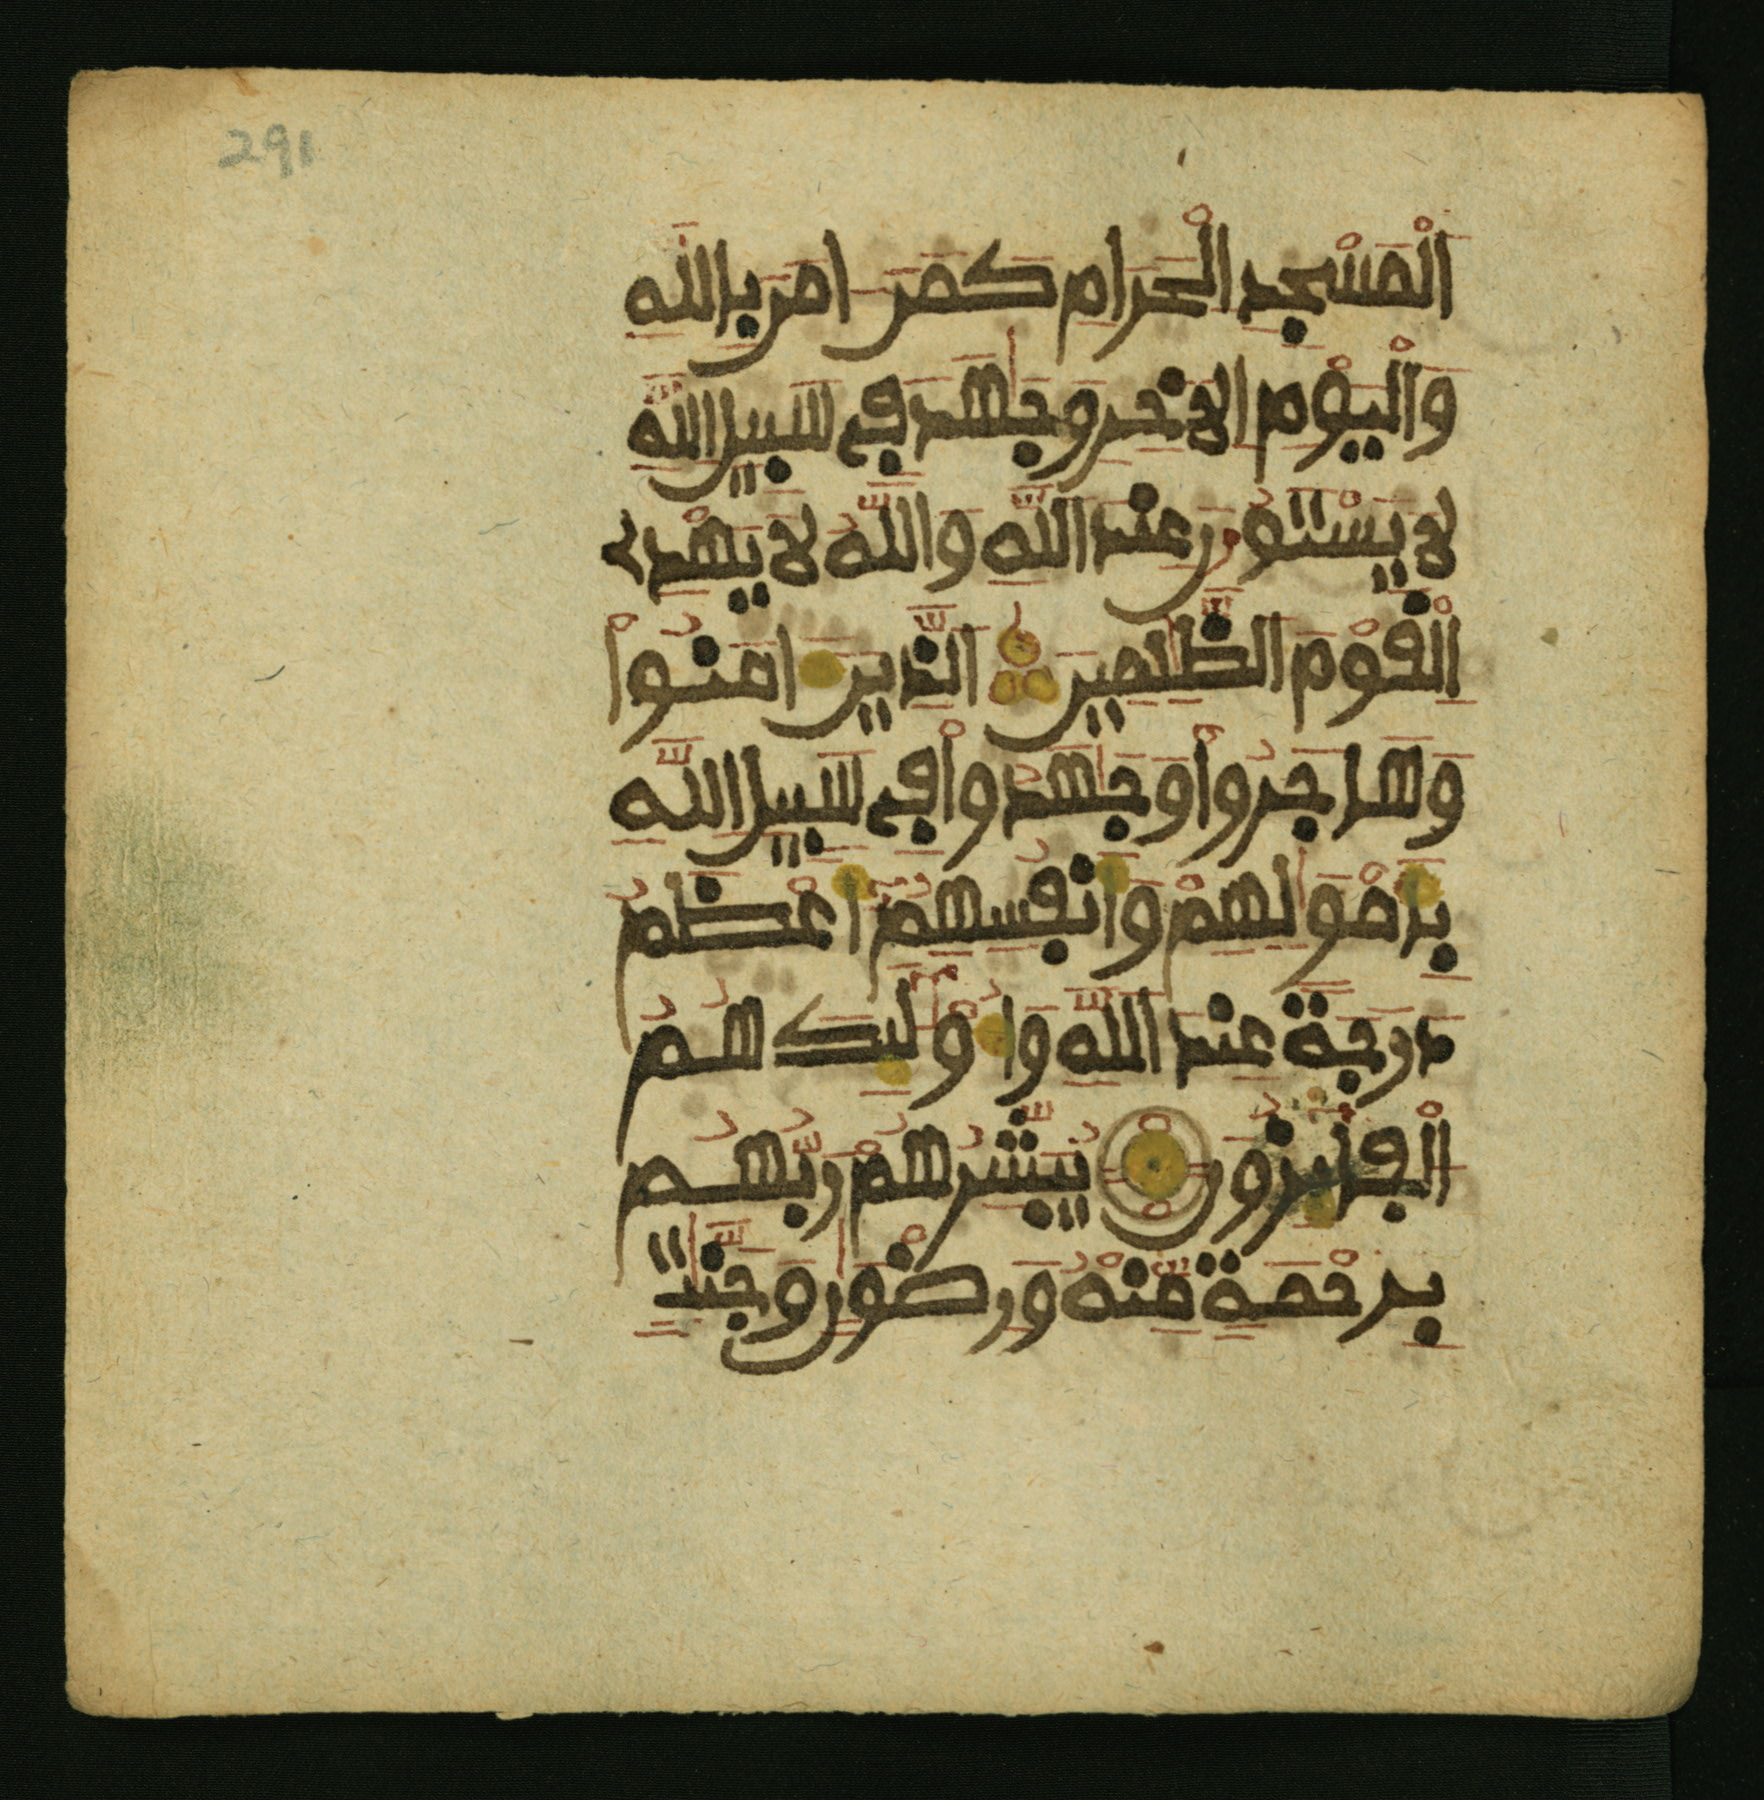 291
اَلْمَسْجِدِ اِلْحَرَامِ كَمَنَ اٰمَنَ بِاللَّهِ
وَالْيَوْمِ اِلَاخِرِ وَجَٰهَدَ فِے سَبِيلِ اِللَّهِ
لَا يَسْتَوُۥنَ عِندَ اَللَّهِ وَاللَّهُ لَا يَهْدِے
اِلْقَوْمَ اَلظَّٰلِمِينَ اَلذِينَ ءَامَنُواْ
وَهَاجَرُواْ وَجَٰهَدُواْ فِے سَبِيلِ اِللَّهِ
بِأَمْوَٰلِهِمْ وَأَنفُسِهِمُۥٓ أَعْظَمُ
دَرَجَةً عِندَ اَللَّهِ وَأُوْلَٰٓئِكَ هُمُ
اُلْفَآئِزُونَ يُبَشِّرُهُمْ رَبُّهُم
بِرَحْمَةٍ مِّنْهُ وَرِضْوَٰنٍ وَجَنَّٰتٍ